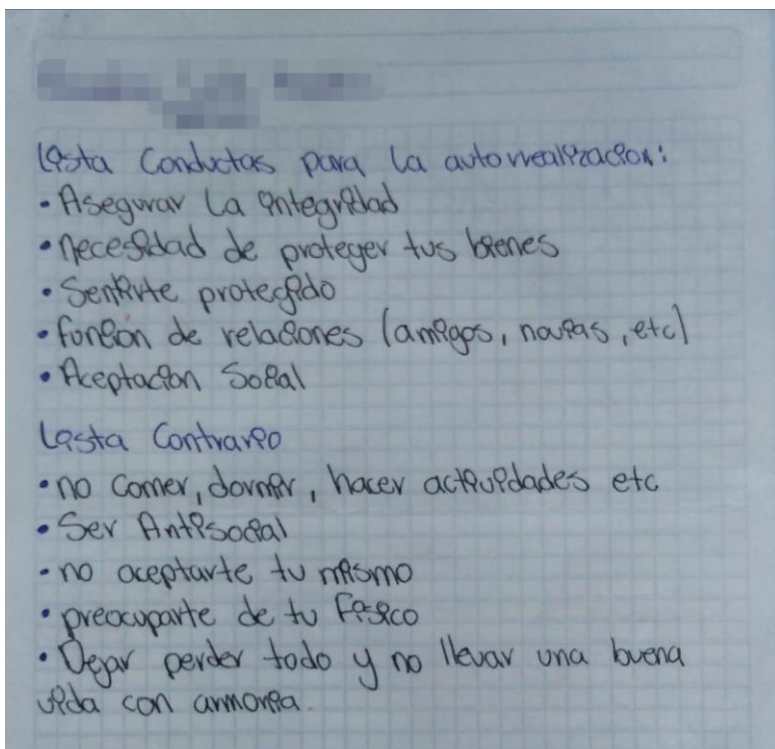 Lista Conductas para la autorrealización:
• Asegurar la integridad
• necesidad de proteger tus bienes
• Sentirte protegido
• funcion de relaciones (amigos, novias, etc)
• Aceptacion Social
Lista Contrario
• no comer, dormir, hacer actividades etc
• Ser Antisocial
• no aceptarte tu mismo
• preocuparte de tu físico
• Dejar perder todo y no llevar una buena
vida con armonia.